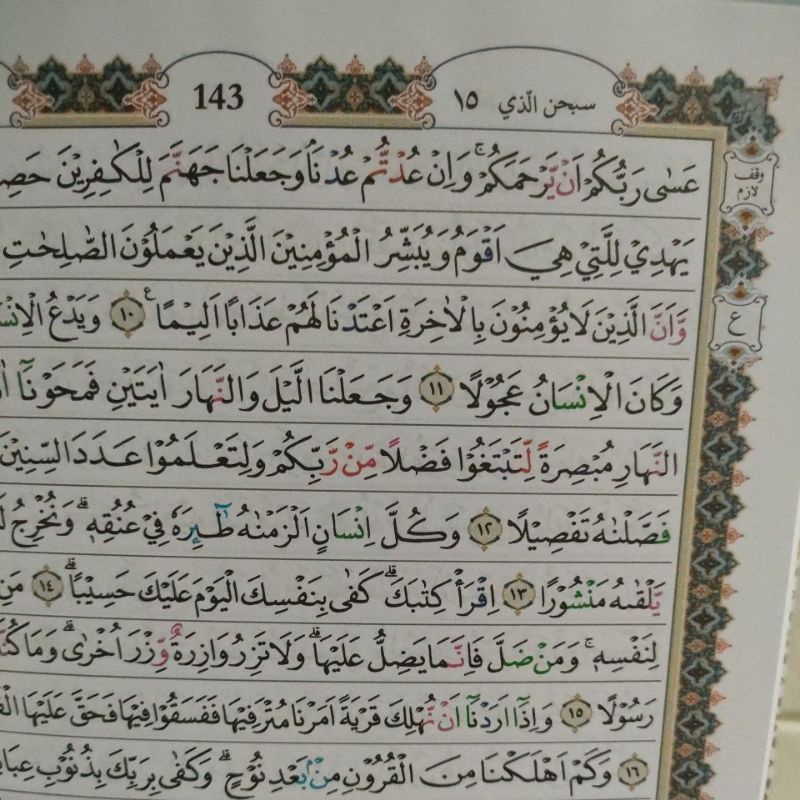 143
١٥ سبحن الّذي
وقف لازم
عَسٰى رَبُّكُمْ اَنْ يَّرْحَمَكُمْۚ وَاِنْ عُدْتُّمْ عُدْنَاۘ وَجَعَلْنَا جَهَنَّمَ لِلْكٰفِرِيْنَ
يَهْدِيْ لِلَّتِيْ هِيَ اَقْوَمُ وَيُبَشِّرُ الْمُؤْمِنِيْنَ الَّذِيْنَ يَعْمَلُوْنَ الصّٰلِحٰتِ
ع
وَاَنَّ الَّذِيْنَ لَا يُؤْمِنُوْنَ بِالْاٰخِرَةِ اَعْتَدْنَا لَهُمْ عَذَابًا اَلِيْمًا ࣖ ١٠ وَيَدْعُ
وَكَانَ الْاِنْسَانُ عَجُوْلًا ١١ وَجَعَلْنَا الَّيْلَ وَالنَّهَارَ اٰيَتَيْنِ فَمَحَوْنَآ
النَّهَارِ مُبْصِرَةً لِّتَبْتَغُوْا فَضْلًا مِّنْ رَّبِّكُمْ وَلِتَعْلَمُوْا عَدَدَ السِّنِيْنَ
فَصَّلْنٰهُ تَفْصِيْلًا ١٢ وَكُلَّ اِنْسَانٍ اَلْزَمْنٰهُ طٰۤىِٕرَهٗ فِيْ عُنُقِهٖۗ وَنُخْرِجُ
يَّلْقٰىهُ مَنْشُوْرًا ١٣ اِقْرَأْ كِتٰبَكَۗ كَفٰى بِنَفْسِكَ الْيَوْمَ عَلَيْكَ حَسِيْبًاۗ ١٤ مَنِ
لِنَفْسِهٖۚ وَمَنْ ضَلَّ فَاِنَّمَا يَضِلُّ عَلَيْهَاۗ وَلَا تَزِرُ وَازِرَةٌ وِّزْرَ اُخْرٰىۗ وَمَا كُنَّا
رَسُوْلًا ١٥ وَاِذَآ اَرَدْنَآ اَنْ نُّهْلِكَ قَرْيَةً اَمَرْنَا مُتْرَفِيْهَا فَفَسَقُوْا فِيْهَا فَحَقَّ عَلَيْهَا
١٦ وَكَمْ اَهْلَكْنَا مِنَ الْقُرُوْنِ مِنْۢ بَعْدِ نُوْحٍۗ وَكَفٰى بِرَبِّكَ بِذُنُوْبِ